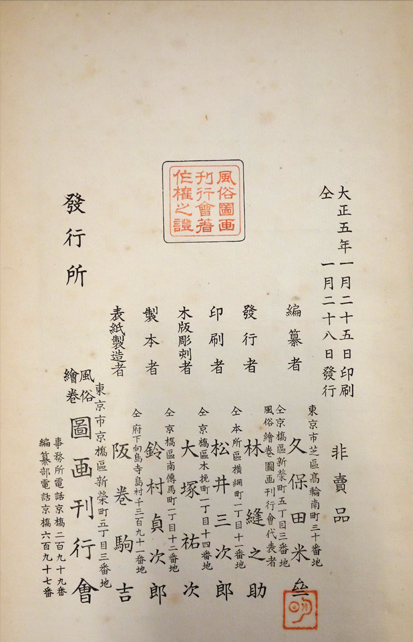 大正五年一月二十五日印刷
仝　一月二十八日發行
非賣品
編纂者
東京市芝區高輪南町三十番地
久保田米齋
仝京橋區新榮町五丁目三番地
風俗繪卷圖画刊行會代表者
發行者
林縫之助
仝本所區横網町一丁目十一番地
印刷者
松井三次郎
仝京橋區木挽町一丁目十四番地
木版彫刻者
大塚祐次
仝京橋區南傳馬町二丁目十二番地
製本者
鈴村貞次郎
仝府下向島寺島村千三百九十一番地
表紙製造者
阪巻駒吉
風俗圖画
刊行會著
作權之證
發行所
東京市京橋區新榮町五丁目三番地
風俗
繪卷
圖画刊行會
事務所電話京橋二百九十九番
編纂部電話京橋六百九十七番